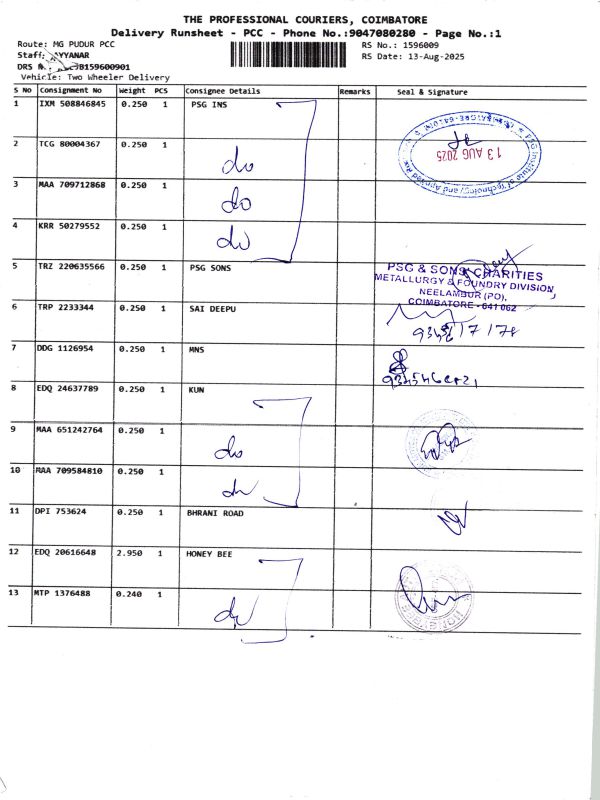 THE PROFESSIONAL COURIERS, COIMBATORE
Delivery Runsheet - PCC - Phone No.:9047080280 - Page No.:1
Route: MG PUDUR PCC
RS No.: 1596009
Staff: AYYANAR
RS Date: 13-Aug-2025
DRS B159600901
Vehicle: Two Wheeler Delivery
S No Consignment No Weight PCS Consignee Details Remarks Seal & Signature
1 IXM 508846845 0.250 1 PSG INS
2 TCG 80004367 0.250 1 do
13 AUG 2025
3 MAA 709712868 0.250 1 do
4 KRR 50279552 0.250 1 do
5 TRZ 220635566 0.250 1 PSG SONS
PSG & SONS CHARITIES
METALLURGY & FOUNDRY DIVISION
NEELAMBUR (PO),
COIMBATORE - 641 062
6 TRP 2233344 0.250 1 SAI DEEPU
7 DDG 1126954 0.250 1 MNS
8 EDQ 24637789 0.250 1 KUN
9 MAA 651242764 0.250 1 do
10 MAA 709584810 0.250 1 do
11 DPI 753624 0.250 1 BHRANI ROAD
12 EDQ 20616648 2.950 1 HONEY BEE
13 MTP 1376488 0.240 1 do